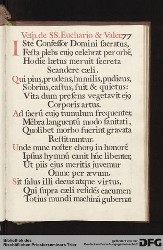 Vesp. de SS. Eucharis. & Valer. 77
Iste Confessor Domini sacratus,
Festa plebs cujus celebrat per orbé,
Hodie lætus meruit secreta
Scandere cœli.
Qui pius, prudens, humilis, pudicus,
Sobrius, castus, fuit & quietus:
Vita dum præsens vegetavit ejus
Corporis artus.
Ad sacrū cujus tumulum frequenter,
Mēbra languentū modo sanitati,
Quolibet morbo fuerint gravata
Restituuntur.
Unde nunc noster chorus in honoré
Ipsius hymnū canit hūc libenter,
Ut piis ejus meritis juvemur
Omne per ævum.
Sit salus illi decus atque virtus,
Qui supra cœli residēs cacumen
Totius mundi machinā gubernat
Bibliothek des
Bischöflichen Priesterseminars Trier
gefördert von der
DFG